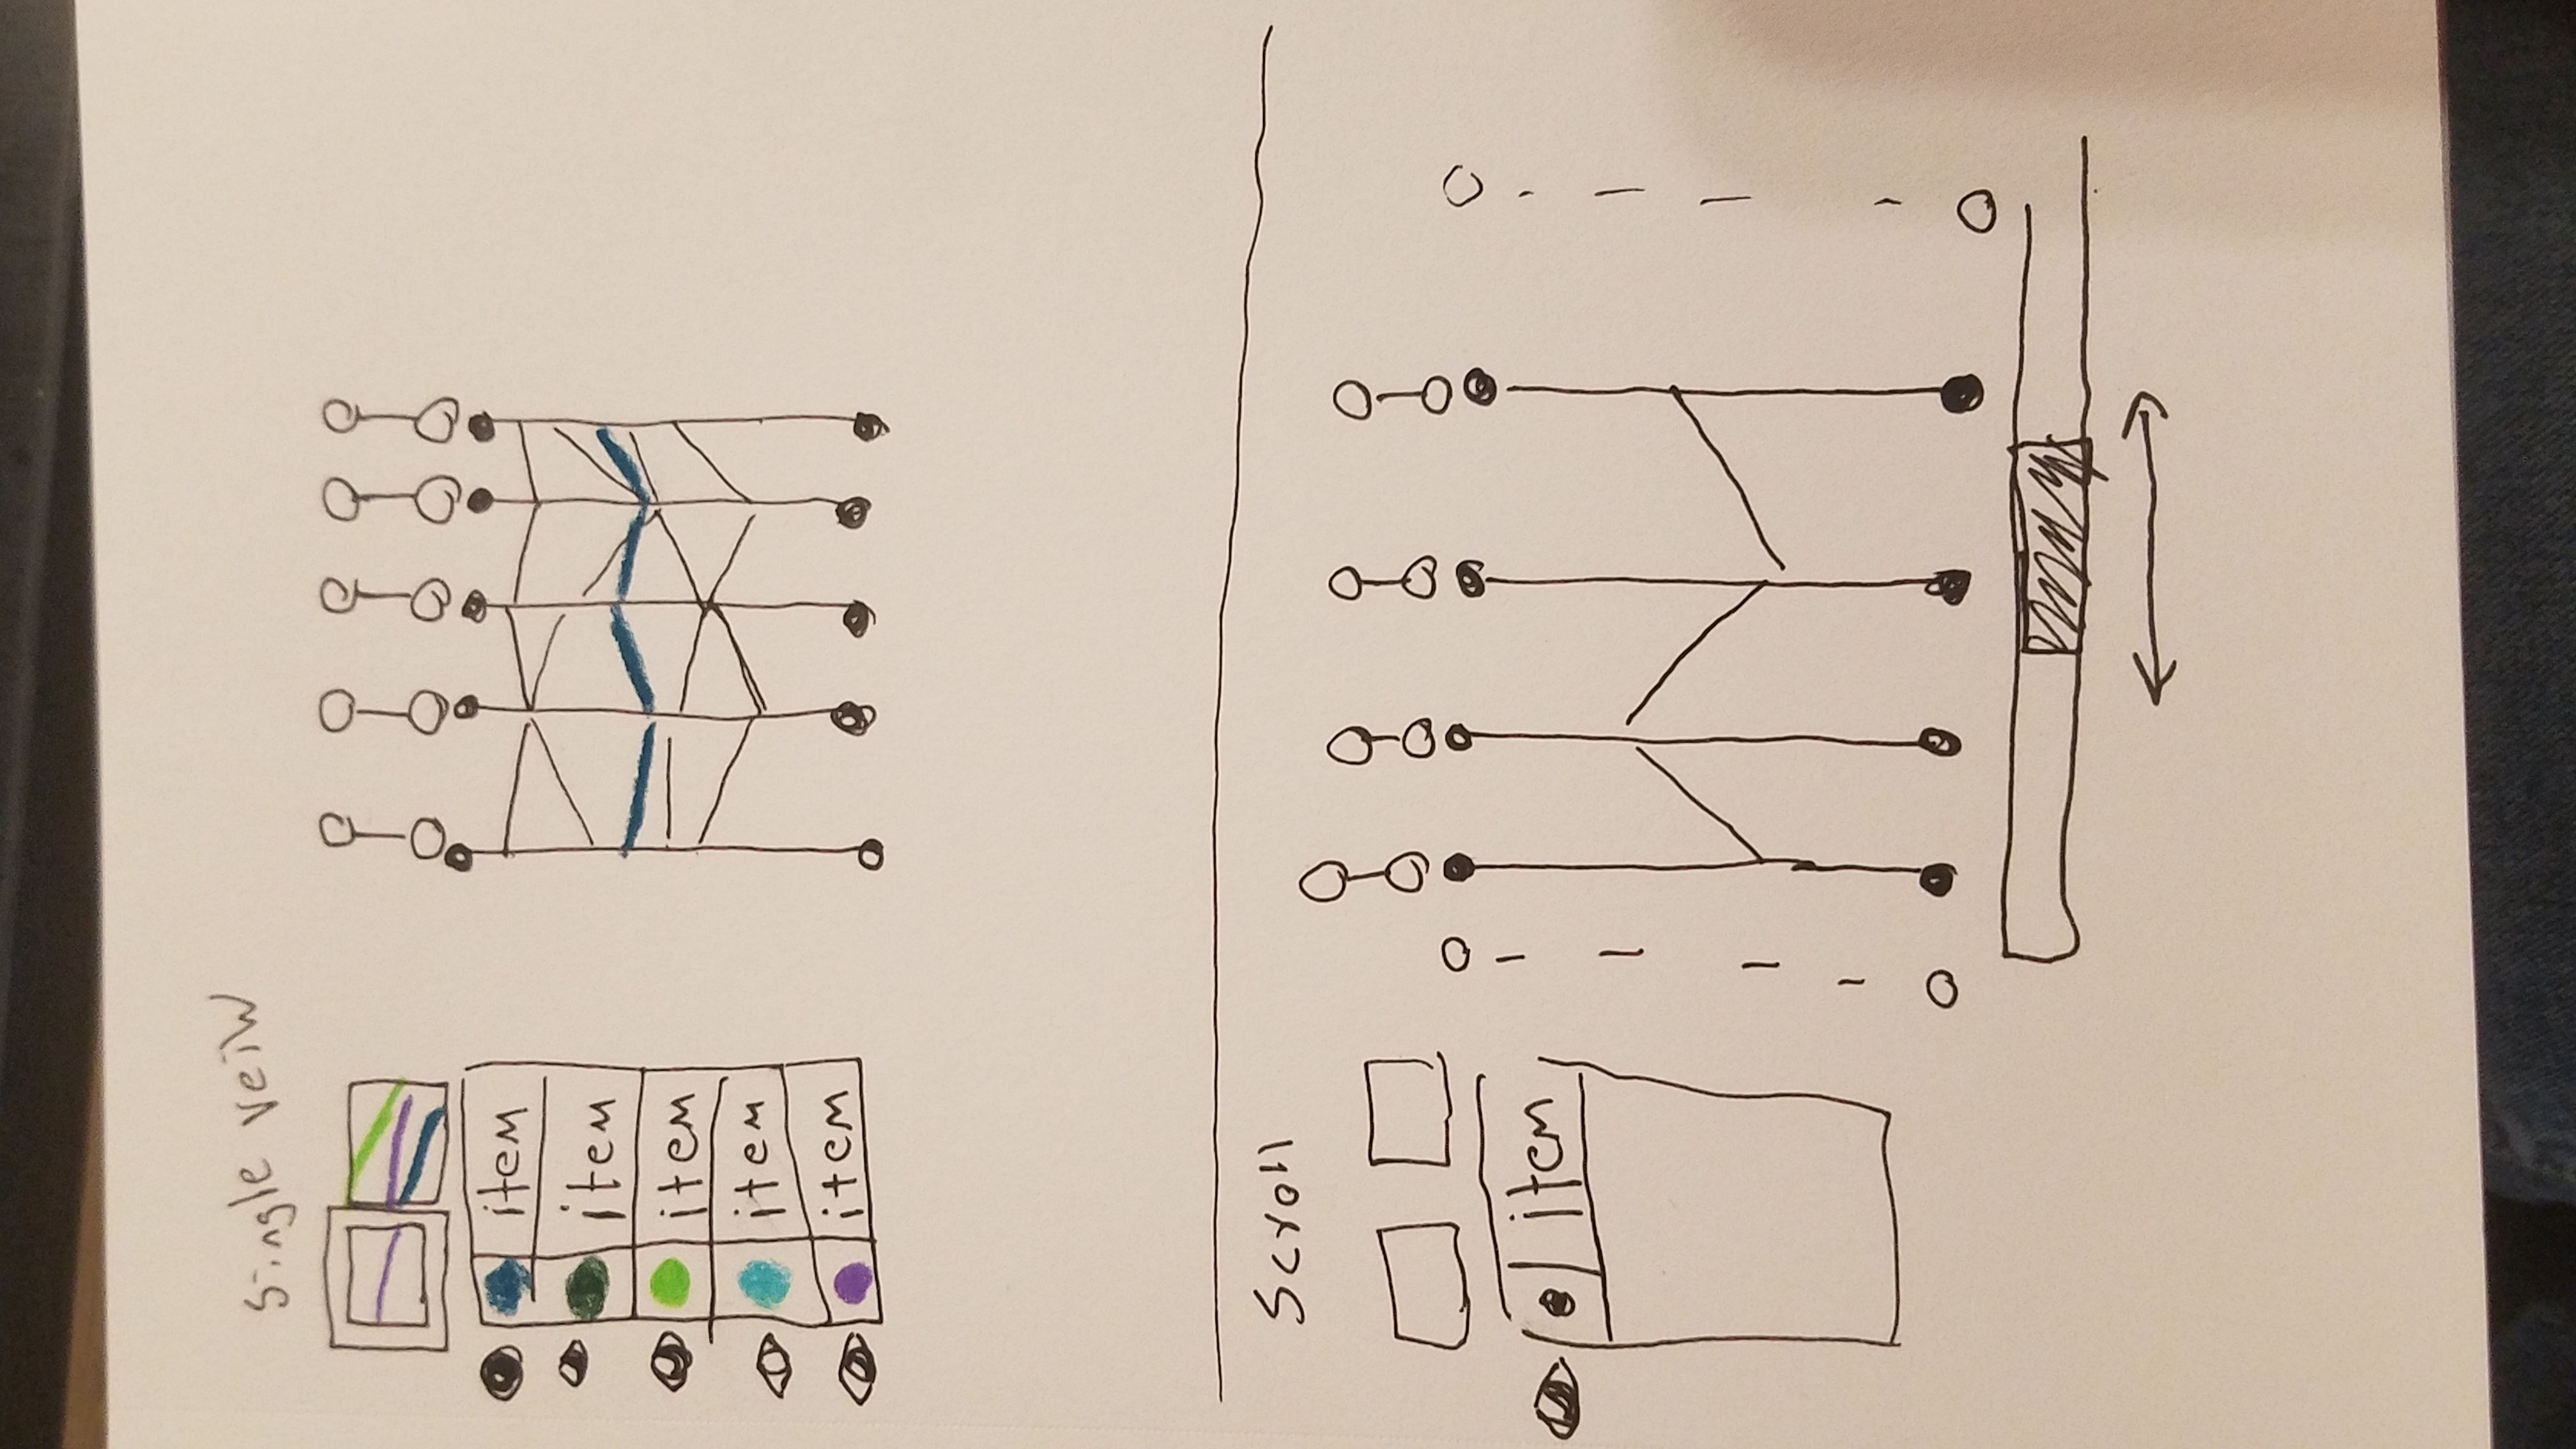 Single veiw
item
item
item
item
item
Scroll
item